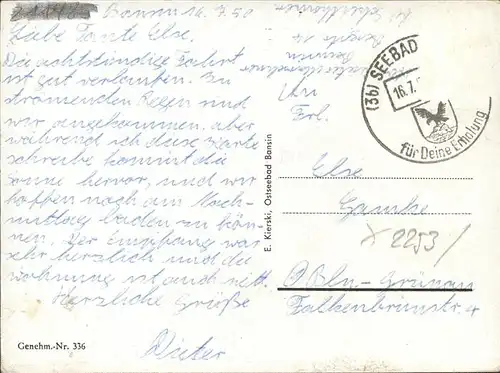 Bansin 16.7.50
Liebe Tante Else.
Die achtstündige Fahrt
ist gut verlaufen. In
strömenden Regen sind
wir angekommen. aber
während ich diese Karte
schreibe kommt die
Sonne hervor, und wir
hoffen noch am Nach-
mittag baden zu kön-
nen. Der Empfang war
sehr herzlich und die
Wohnung ist auch nett.
Herzliche Grüße
Dieter
Genehm.-Nr. 336
E. Kierski, Ostseebad Bansin
Bansin
(3b) SEEBAD
16.7.
für Deine Erholung
An
Frl.
Else
Gamke
2253/
Bln-Grünau
Falkenbrunnstr. 4